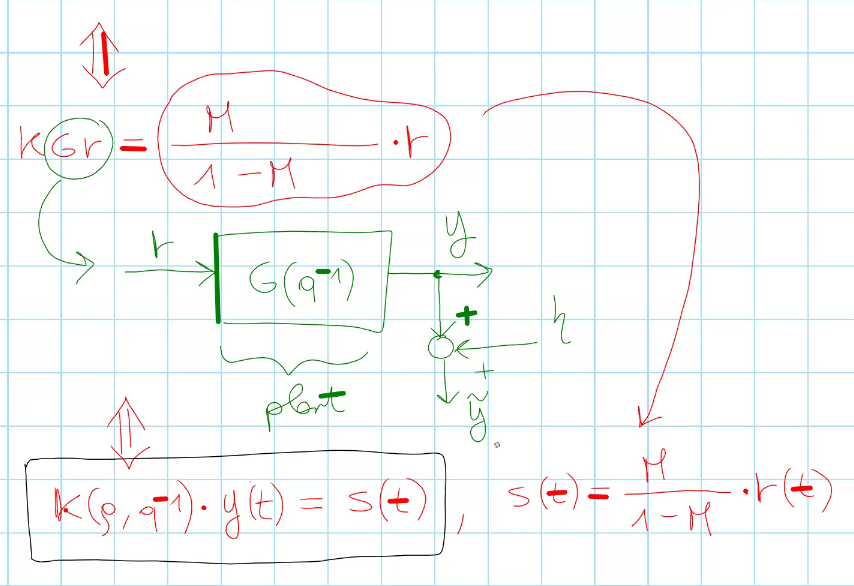 KGr = M / (1 - M) · r
r
y
G(q⁻¹)
+
η
+
plant
ỹ
K(ρ, q⁻¹) · y(t) = s(t) , s(t) = M / (1 - M) · r(t)